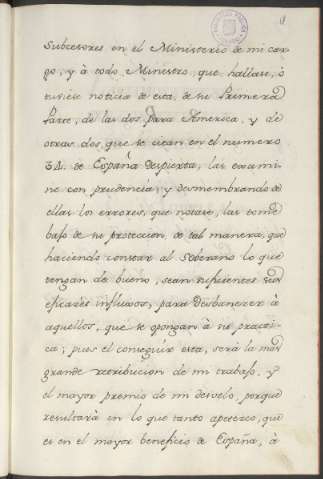 Subcesores en el Ministerio de mi car-
go, y à todo Ministro, que hallase, ó
tuviese noticia de esta, de su Primera
Parte, de las dos, para America, y de
otras dos, que se citan en el numero
de España despierta, las exami-
ne con prudencia, y desmembrando de
ellas los errores, que notase, las tome
bajo de su proteccion, de tal manera, que
haciendo constar al Soberano lo que
tengan de bueno, sean suficientes sus
eficazes influxos, para desbanezer à
aquellos, que se opongan à su practi-
ca; pues el conseguir esta, será la mas
grande retribucion de mi trabajo, y
el mayor premio de mi desvelo, porque
resultarà en lo que tanto apetezco, que
es en el mayor beneficio de España, à